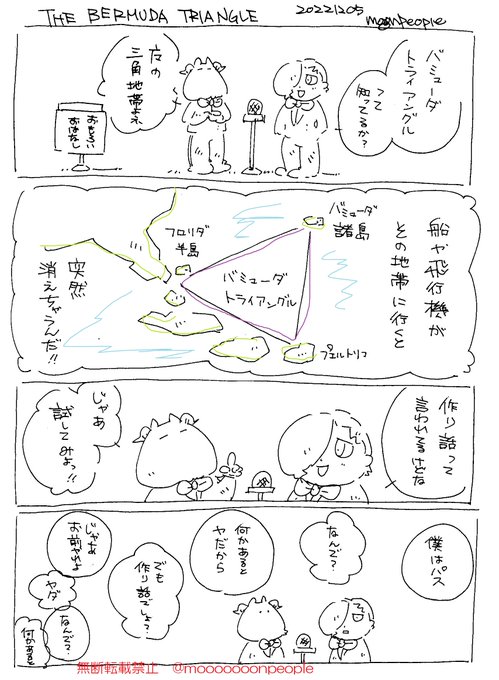 THE BERMUDA TRIANGLE
20221205
moonpeople
バミューダ
トライアングル
って
知ってるか?
魔の
三角地帯よね
おもろい
おはなし
船や飛行機が
その地帯に行くと
バミューダ
諸島
フロリダ
半島
バミューダ
トライアングル
プエルトリコ
突然
消えちゃうんだ!!
作り話って
言われてるけどな
じゃあ
試してみよっ!!
僕はパス
なんで?
何かあると
ヤだから
でも
作り話でしょ?
じゃあ
お前やれよ
ヤダ
なんで?
何かあると
無断転載禁止 @mooooooonpeople